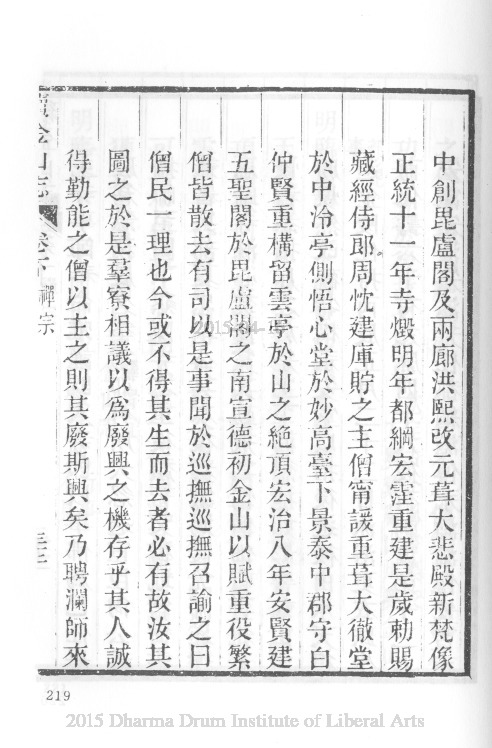 中創毘盧閣及兩廊洪熙改元葺大悲殿新梵像
正統十一年寺燬明年都綱宏霔重建是歲勅賜
藏經侍郎周忱建庫貯之主僧甯諼重葺大徹堂
於中泠亭側悟心堂於妙高臺下景泰中郡守白
仲賢重構留雲亭於山之絕頂宏治八年安賢建
五聖閣於毘盧閣之南宣德初金山以賦重役繁
僧皆散去有司以是事聞於巡撫巡撫召諭之曰
僧民一理也今或不得其生而去者必有故汝其
圖之於是羣寮相議以爲廢興之機存乎其人誠
得勤能之僧以主之則其廢斯興矣乃聘瀾師來
續金山志
卷下
禪宗
219
2015 Dharma Drum Institute of Liberal Arts